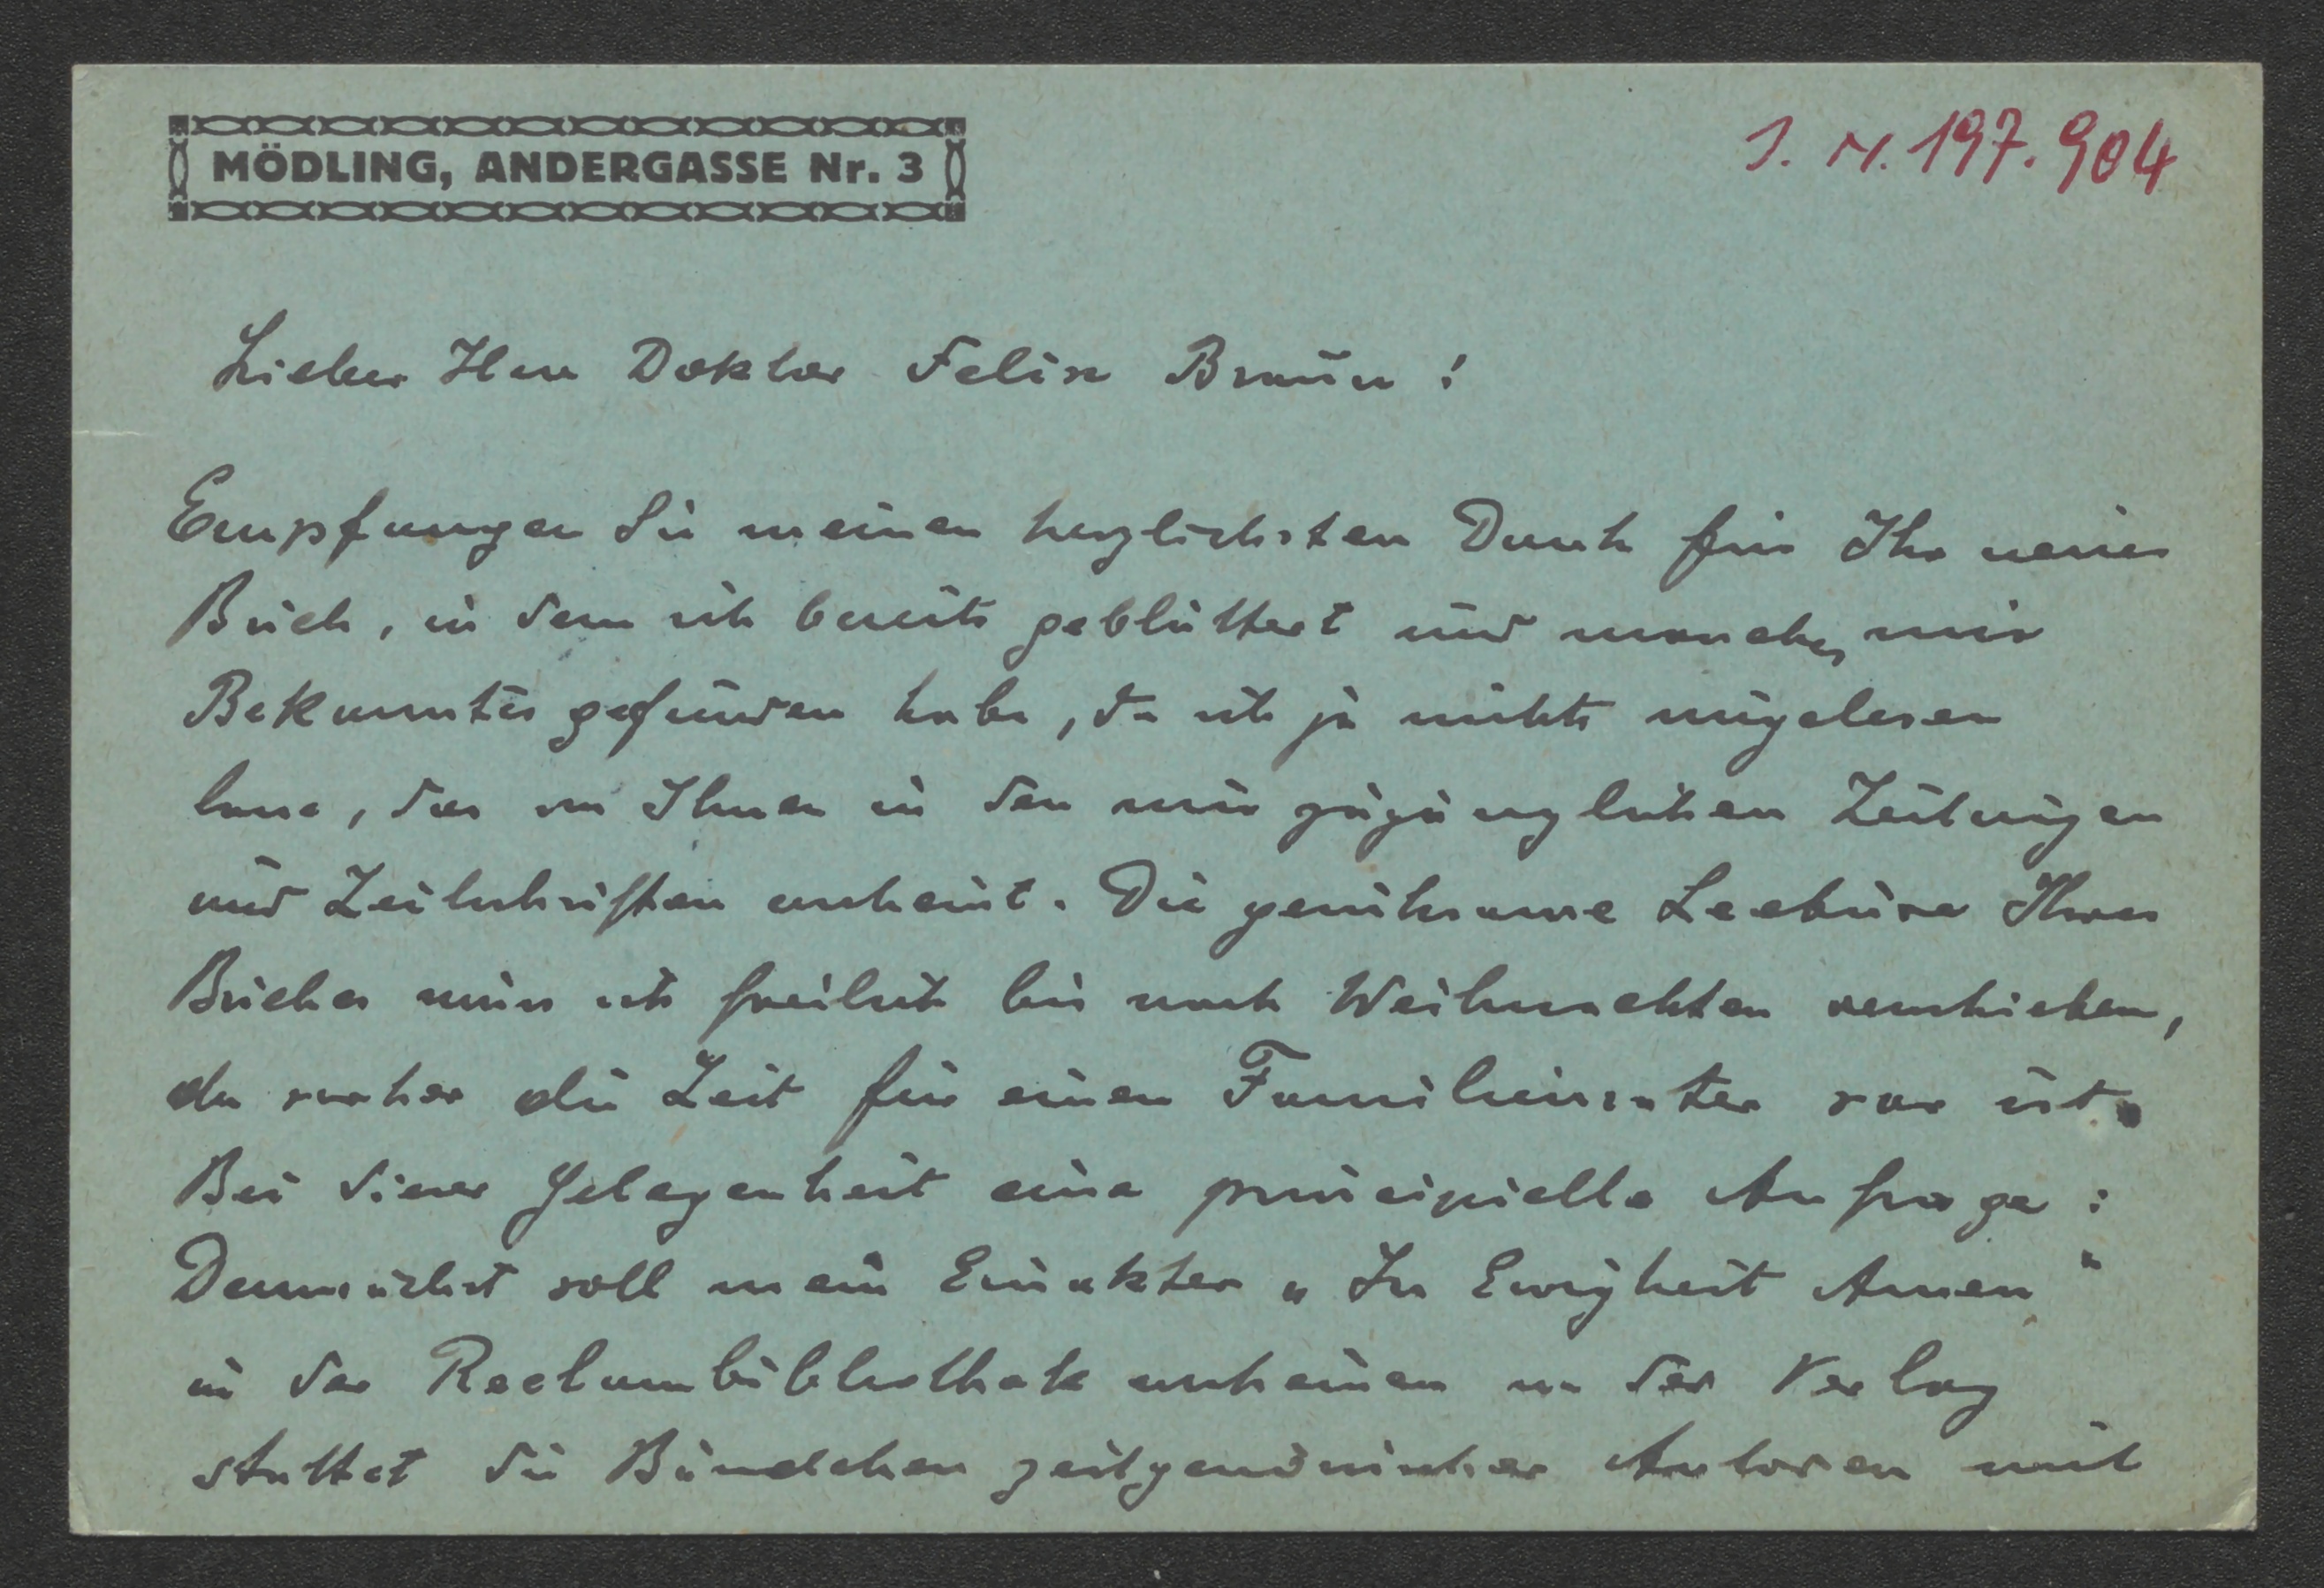 MÖDLING, ANDERGASSE Nr. 3
I. N. 197.904
Lieber Herr Doktor Felix Braun!
Empfangen Sie meinen herzlichsten Dank für Ihr neues
Buch, in dem ich bereits geblättert und manches mir
Bekanntes gefunden habe, da ich ja nichts ungelesen
lasse, das von Ihnen in den mir zugänglichen Zeitungen
und Zeitschriften erscheint. Die geruhsame Lectüre Ihres
Buches muss ich freilich bis nach Weihnachten verschieben,
da vorher die Zeit für einen Familienvater rar ist.
Bei dieser Gelegenheit eine principielle Anfrage:
Demnächst soll mein Einakter „In Ewigkeit Amen"
in der Reclambibliothek erscheinen u. der Verlag
stattet die Bändchen zeitgenössischer Autoren mit